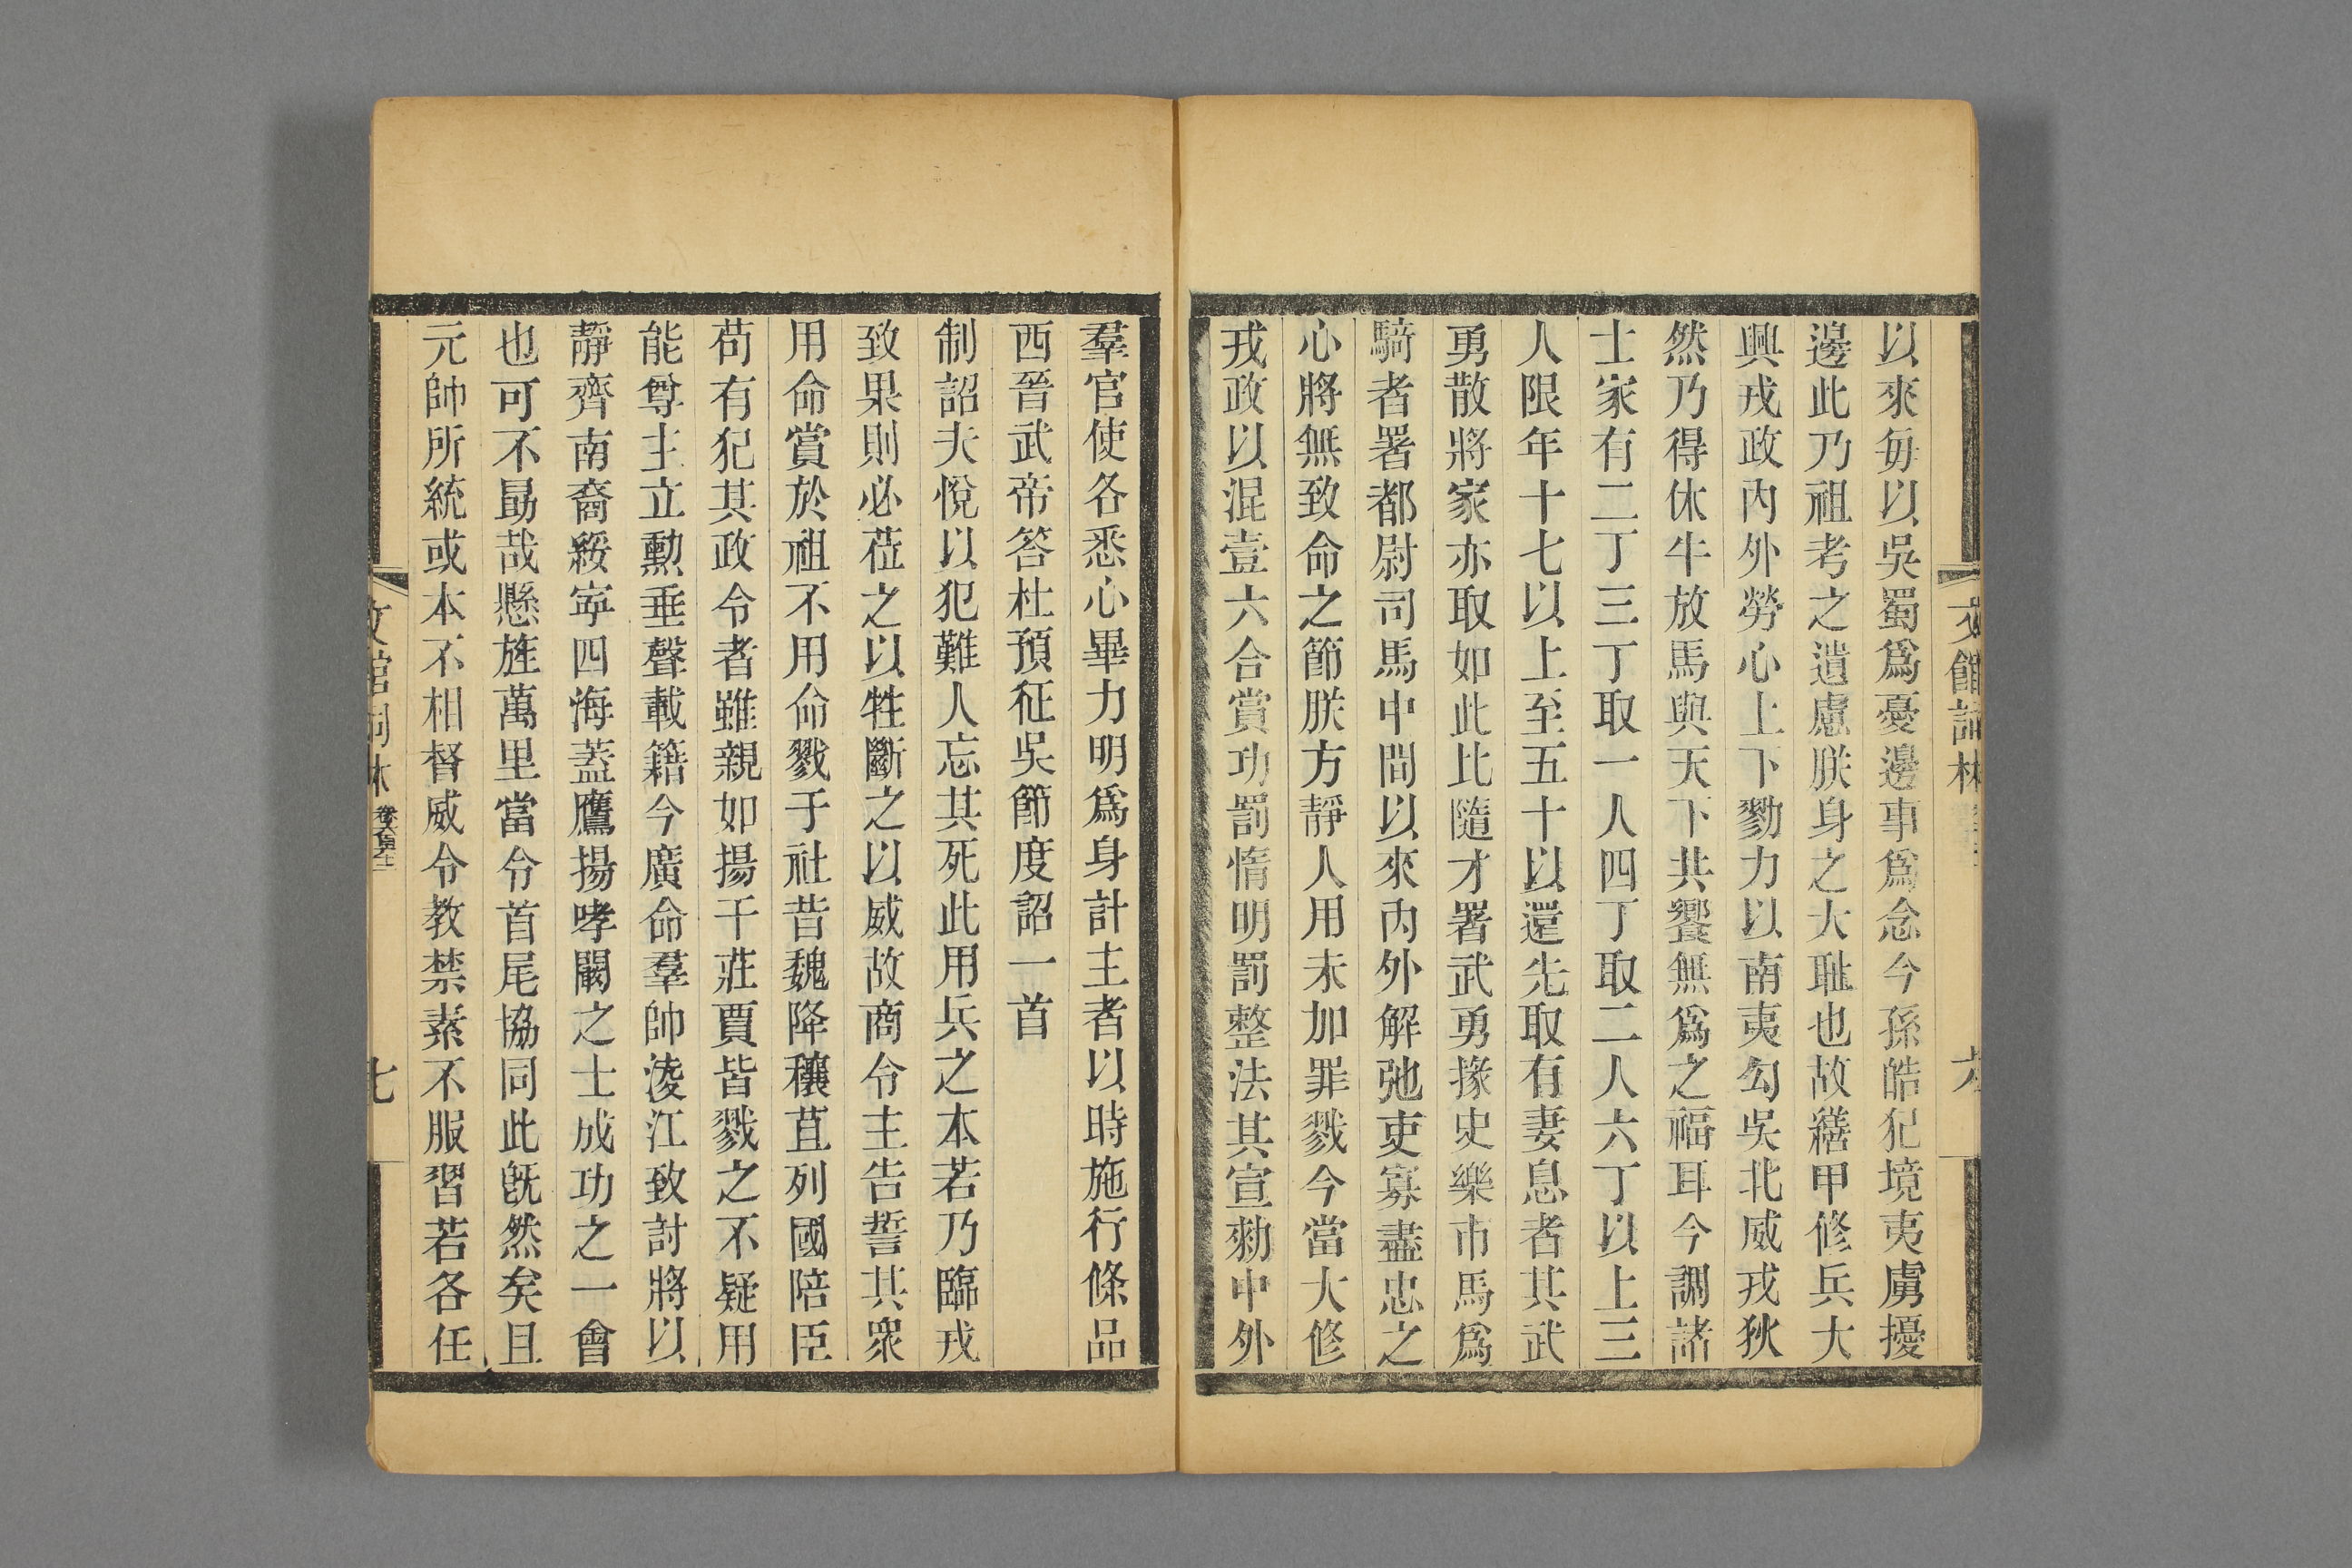 文館詞林
六
以來每以吳蜀爲憂邊事爲念今孫皓犯境夷虜擾
邊此乃祖考之遺慮朕身之大耻也故繕甲修兵大
興戎政內外勞心上下勠力以南夷勾吳北威戎狄
然乃得休牛放馬與天下共饗無爲之福耳今調諸
士家有二丁三丁取一人四丁取二人六丁以上三
人限年十七以上至五十以還先取有妻息者其武
勇散將家亦取如此比隨才署武勇掾史樂市馬爲
騎者署都尉司馬中間以來內外解弛吏寡盡忠之
心將無致命之節朕方靜人用未加罪戮今當大修
戎政以混壹六合賞功罰惰明罰整法其宣勑中外
羣官使各悉心畢力明爲身計主者以時施行條品
西晉武帝答杜預征吳節度詔一首
制詔夫悅以犯難人忘其死此用兵之本若乃臨戎
致果則必莅之以牲斷之以威故商令主告誓其衆
用命賞於祖不用命戮于社昔魏降穰苴列國陪臣
苟有犯其政令者雖親如揚干莊賈皆戮之不疑用
能尊主立勳垂聲載籍今廣命羣帥淩江致討將以
靜齊南裔綏寧四海蓋鷹揚哮闞之士成功之一會
也可不勗哉懸旌萬里當令首尾協同此既然矣且
元帥所統或本不相督威令教禁素不服習若各任
文館詞林
七